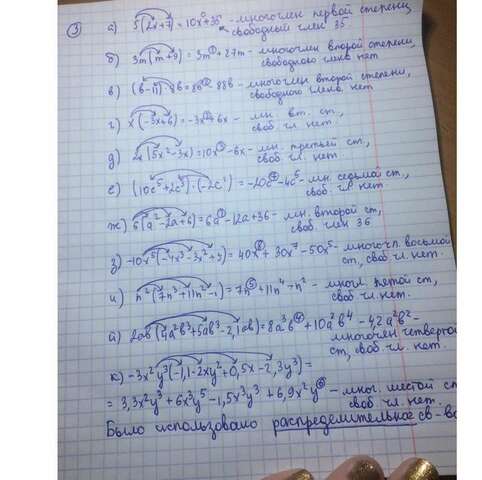 ③ а) 5(2x+7)=10x+35 - многочлен первой степени,
свободный член 35
б) 3m(m+9)=3m²+27m - многочлен второй степени,
свободного члена нет
в) (b-11)·8b=8b²-88b - многочлен второй степени,
свободного члена нет
г) x(-3x+6)=-3x²+6x - мн. вт. ст.,
своб. чл. нет.
д) (5x²-3x)=10x³-6x - мн. третьей ст.,
своб. чл. нет.
е) (10c⁵+2c³)·(-2c²)=-20c⁷-4c⁵ - мн. седьмой ст.,
своб. чл. нет
ж) 6(a²-2a+6)=6a²-12a+36 - мн. второй ст,
своб. член 36
з) -10x⁵(-4x³-3x²+5)=40x⁸+30x⁷-50x⁵ - многочл. восьмой
ст, своб чл. нет.
и) n²(7n³+11n²-1)=7n⁵+11n⁴-n² - многл. пятой ст,
своб чл. нет.
й) 2ab(4a²b³+5ab³-2,1ab)=8a³b⁴+10a²b⁴-4,2a²b² -
многочлен четвертой
ст, своб чл. нет.
к) -3x²y³(-1,1-2xy²+0,5x-2,3y³)=
=3,3x²y³+6x³y⁵-1,5x³y³+6,9x²y⁶ - мног. шестой ст
своб чл. нет.
Было использовано распределительное св-во